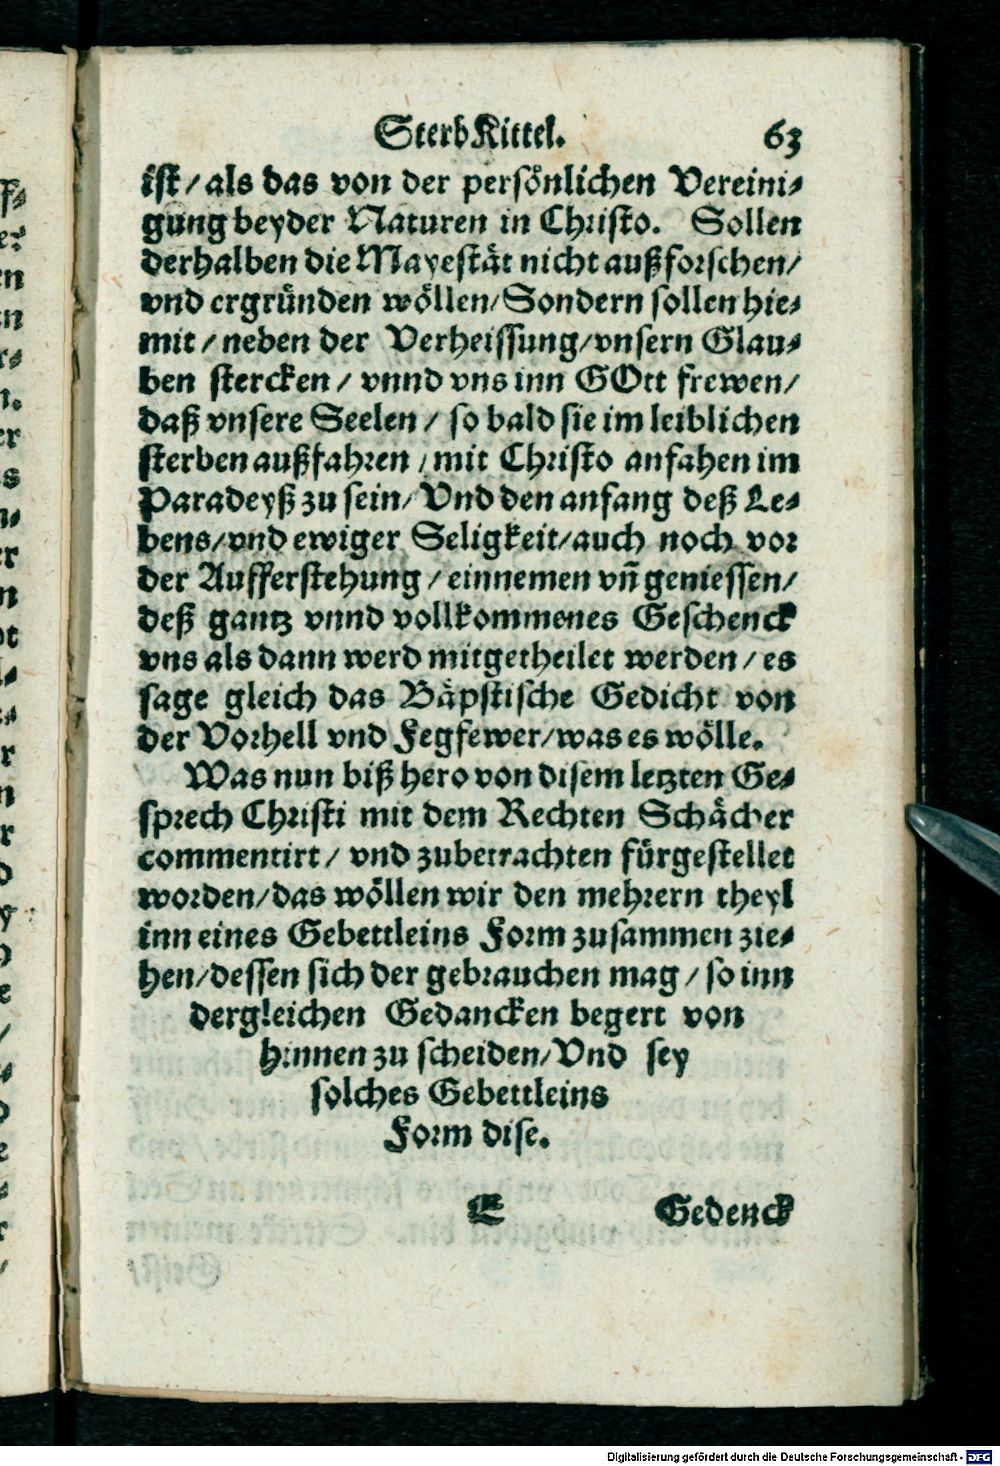 SterbKittel. 63
ist/ als das von der persönlichen Vereini⸗
gung beyder Naturen in Christo. Sollen
derhalben die Mayestät nicht außforschen/
vnd ergründen wöllen/ Sondern sollen hie⸗
mit/ neben der Verheissung/ vnsern Glau⸗
ben stercken/ vnnd vns inn GOtt frewen/
daß vnsere Seelen/ so bald sie im leiblichen
sterben außfahren/ mit Christo anfahen im
Paradeyß zu sein/ Vnd den anfang deß Le⸗
bens/ vnd ewiger Seligkeit/ auch noch vor
der Aufferstehung/ einnemen vn̄ geniessen/
deß gantz vnnd vollkommenes Geschenck
vns als dann werd mitgetheilet werden/ es
sage gleich das Bäpstische Gedicht von
der Vorhell vnd Fegfewer/ was es wölle.
Was nun biß hero von disem letzten Ge⸗
sprech Christi mit dem Rechten Schächer
commentirt/ vnd zubetrachten fürgestellet
worden/ das wöllen wir den mehrern theyl
inn eines Gebettleins Form zusammen zie⸗
hen/ dessen sich der gebrauchen mag/ so inn
dergleichen Gedancken begert von
hinnen zu scheiden/ Vnd sey
solches Gebettleins
Form dise.
Gedenck
Digitalisierung gefördert durch die Deutsche Forschungsgemeinschaft - DFG